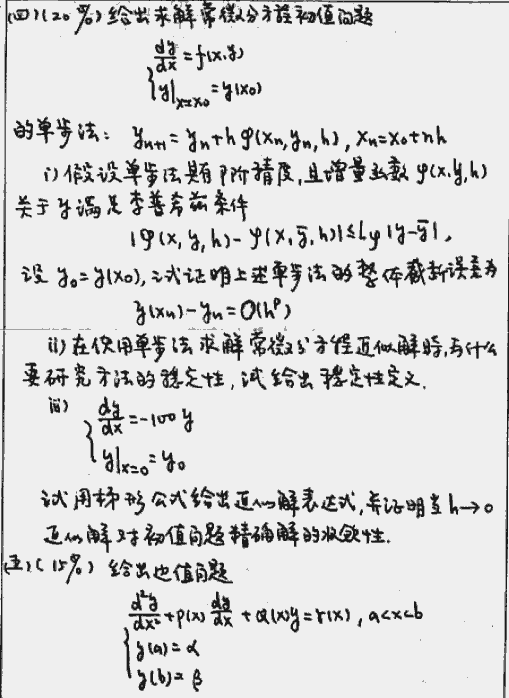 (四)(20%) 给出求解常微分方程初值问题
dy/dx = f(x,y)
y|x=x₀ = y(x₀)
的单步法: yₙ₊₁ = yₙ + h φ(xₙ, yₙ, h), xₙ = x₀ + nh
i) 假设单步法具有 p 阶精度, 且增量函数 φ(x, y, h)
关于 y 满足李普希兹条件
|φ(x, y, h) - φ(x, ȳ, h)| ≤ Lφ |y - ȳ|,
设 y₀ = y(x₀), 试证明上述单步法的整体截断误差为
y(xₙ) - yₙ = O(hᵖ)
ii) 在使用单步法求解常微分方程近似解时, 为什么
要研究方法的稳定性, 试给出稳定性定义.
iii) dy/dx = -100 y
y|x=0 = y₀
试用梯形公式给出近似解表达式, 并证明当 h→0
近似解对初值问题精确解的收敛性.
(五)(15%) 给出边值问题
d²y/dx² + p(x) dy/dx + Q(x)y = r(x), a<x<b
y(a) = α
y(b) = β